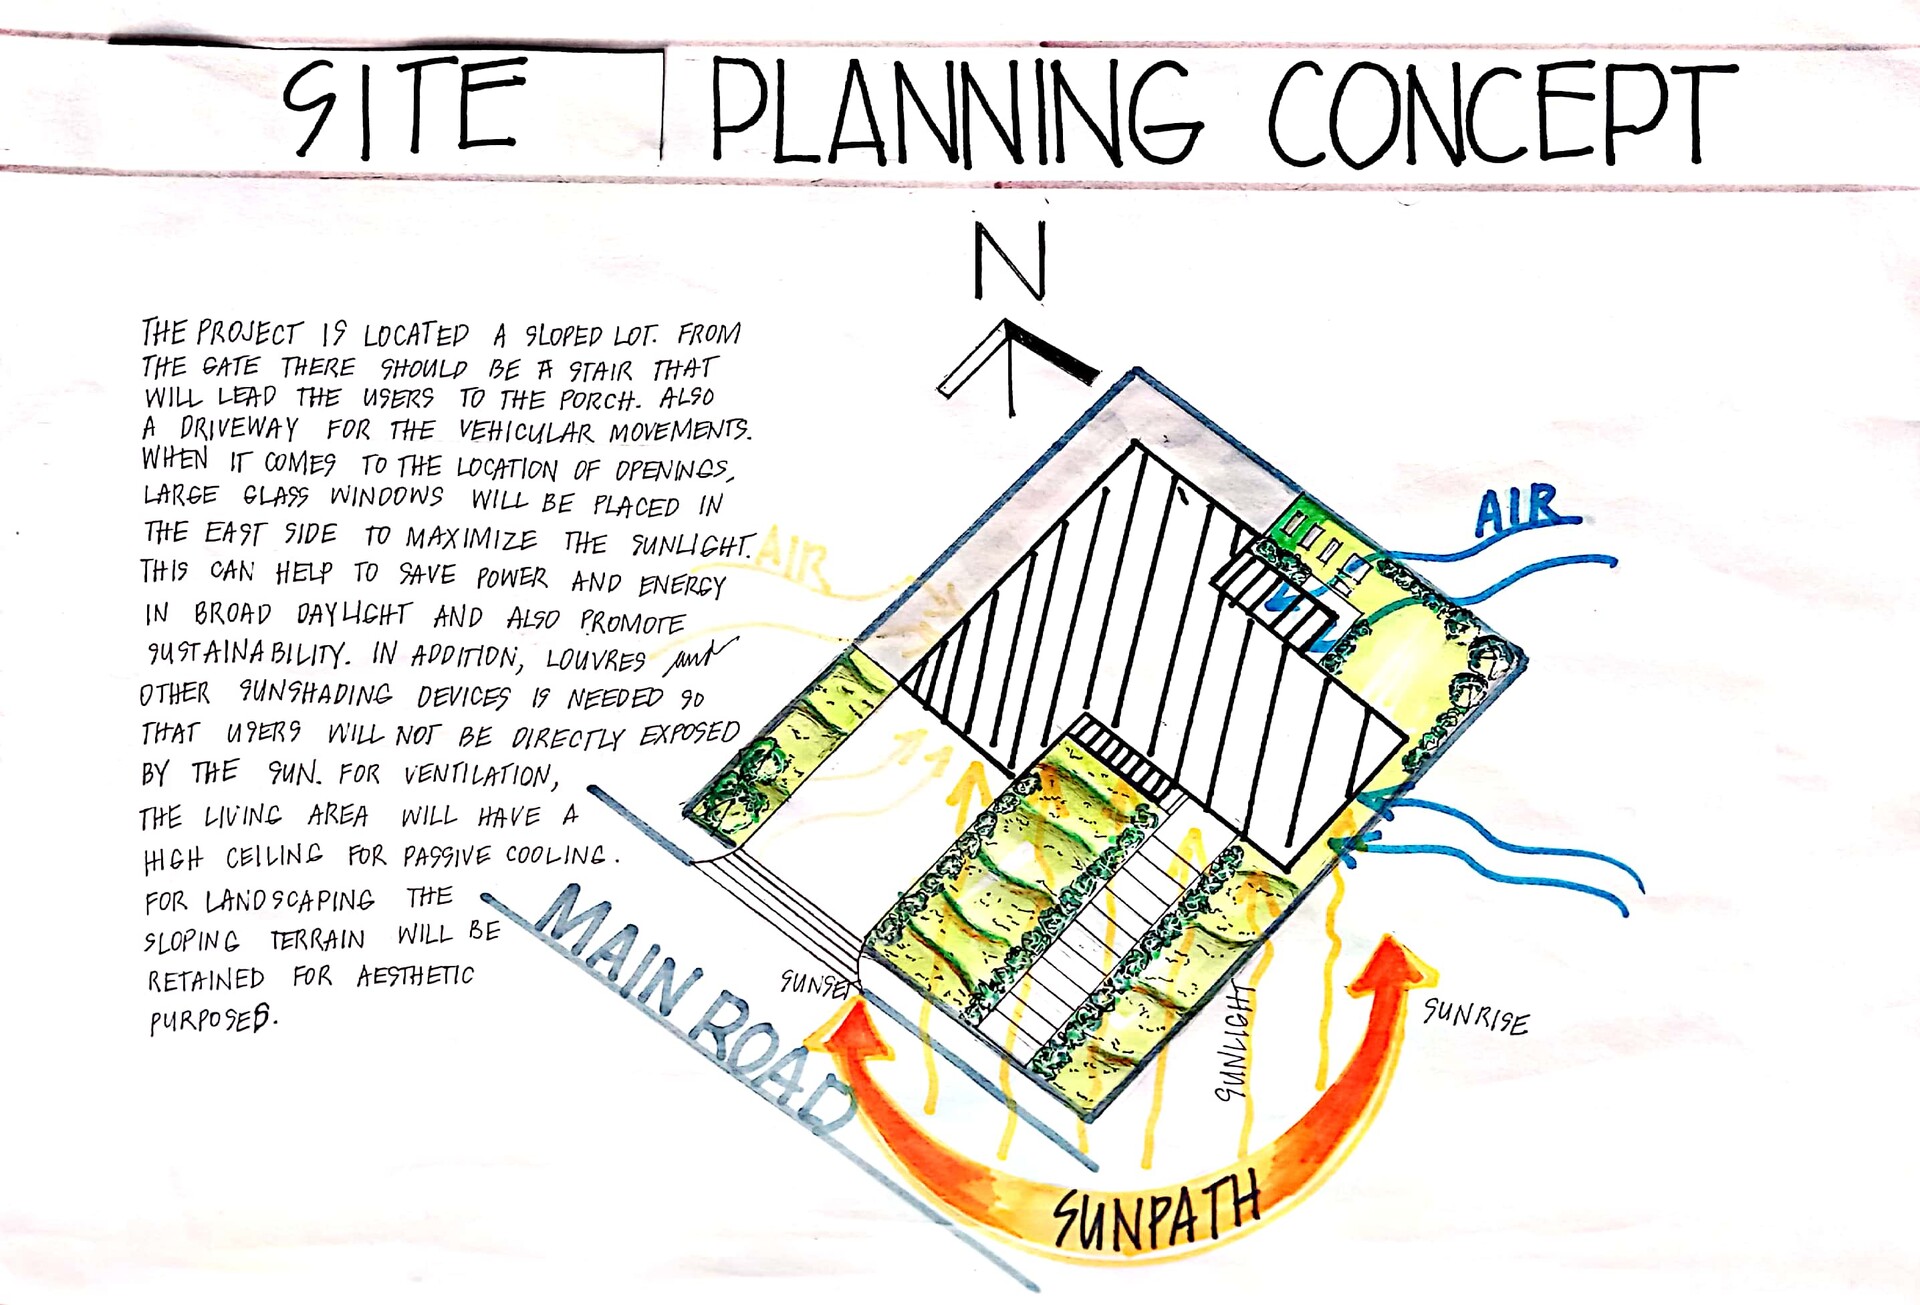 SITE PLANNING CONCEPT
N
THE PROJECT IS LOCATED A SLOPED LOT. FROM
THE GATE THERE SHOULD BE A STAIR THAT
WILL LEAD THE USERS TO THE PORCH. ALSO
A DRIVEWAY FOR THE VEHICULAR MOVEMENTS.
WHEN IT COMES TO THE LOCATION OF OPENINGS,
LARGE GLASS WINDOWS WILL BE PLACED IN
THE EAST SIDE TO MAXIMIZE THE SUNLIGHT.
THIS CAN HELP TO SAVE POWER AND ENERGY
IN BROAD DAYLIGHT AND ALSO PROMOTE
SUSTAINABILITY. IN ADDITION, LOUVRES and
OTHER SUNSHADING DEVICES IS NEEDED SO
THAT USERS WILL NOT BE DIRECTLY EXPOSED
BY THE SUN. FOR VENTILATION,
THE LIVING AREA WILL HAVE A
HIGH CEILING FOR PASSIVE COOLING.
FOR LANDSCAPING THE
SLOPING TERRAIN WILL BE
RETAINED FOR AESTHETIC
PURPOSES.
AIR
AIR
MAIN ROAD
SUNSET
SUNLIGHT
SUNRISE
SUNPATH